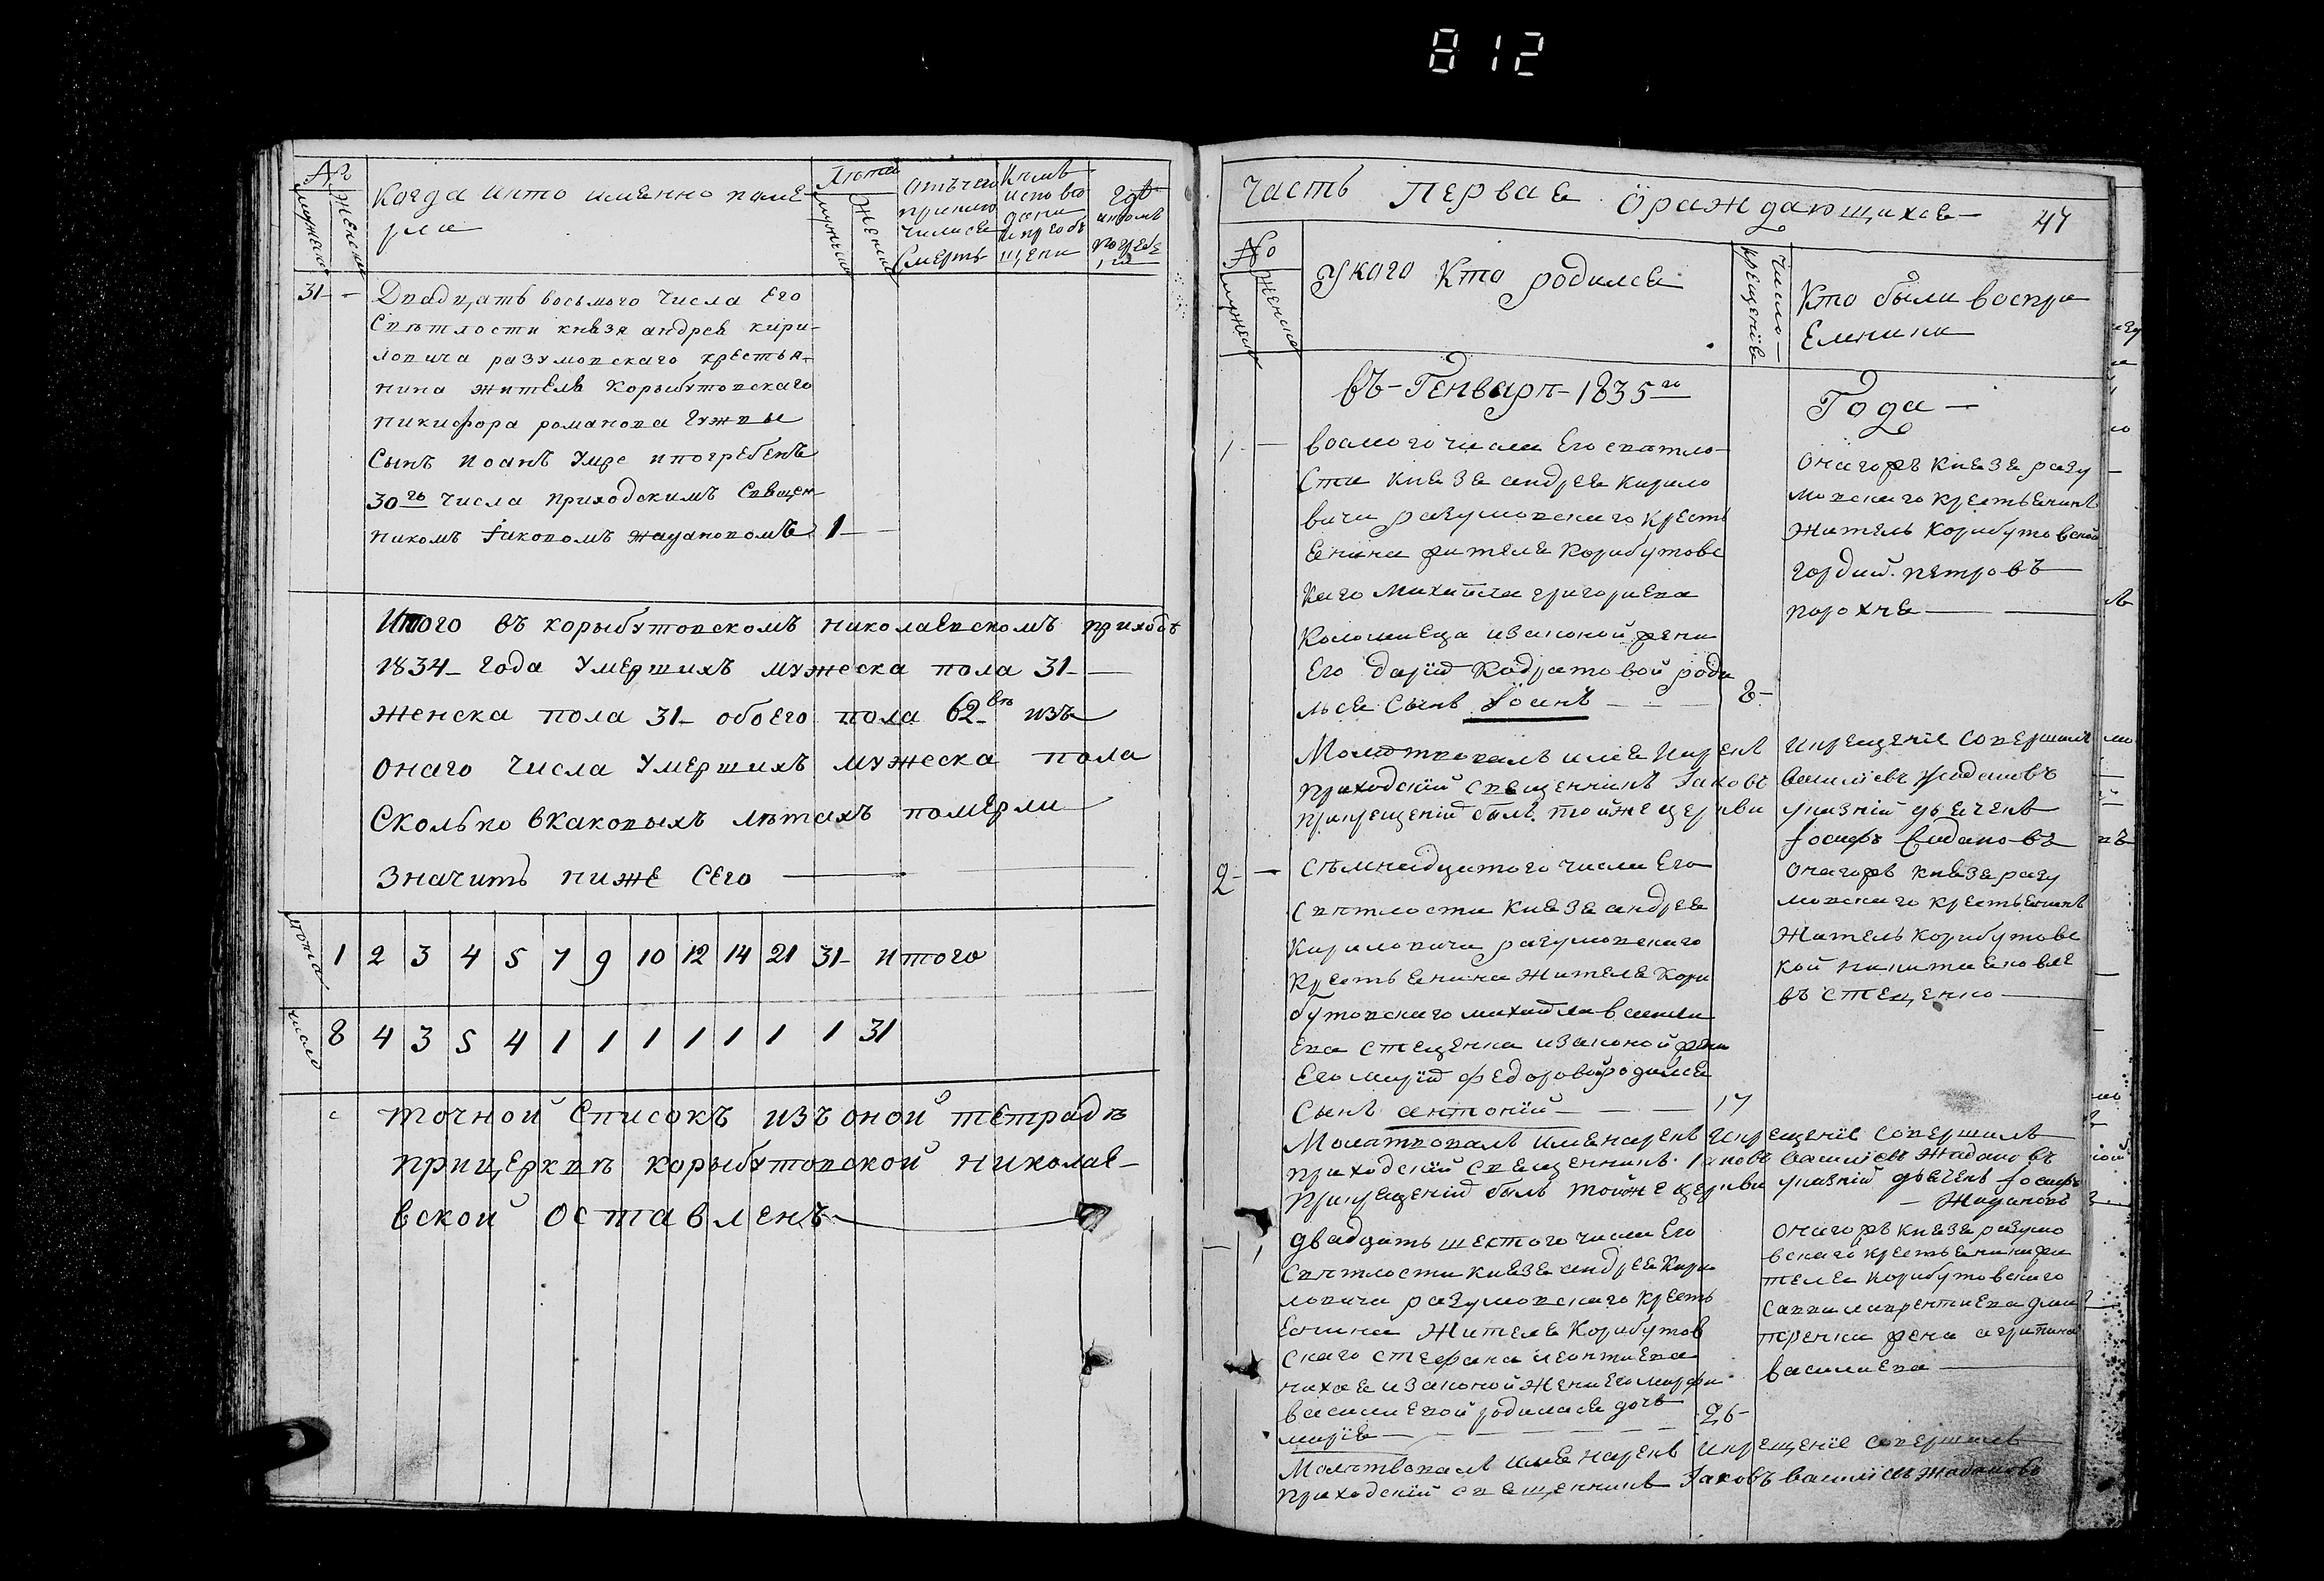 812
№
мужеска
женска
Когда икто именно поме-
рли
Лѣтай
мужеска
женска
отъчего
приклю
чиласе
Смерть
Кѣмъ
испове
дани
ипреоб
щени
Гдѣ
икѣмъ
погребе
ни
31 –
Двадцать восьмого числа Его
Свѣтлости князя андрея кири-
ловича разумовскаго крестья-
нина жителя Корыбутовскаго
никифора романова Гужвы
Сынъ иоанъ умре ипогребенъ
30го числа приходскимъ Священ-
никомъ Іаковомъ жадановомъ 1 –
Итого въ корыбутовскомъ николаевскомъ приходѣ
1834 – года умершихъ мужеска пола 31 –
женска пола 31 – обоего пола 62 – изъ
онаго числа умершихъ мужеска пола
Сколько вкаковыхъ лѣтахъ померли
значитъ ниже сего
1 2 3 4 5 7 9 10 12 14 21 31 – итого
число 8 4 3 5 4 1 1 1 1 1 1 1 31
точной Списокъ изъ оной тетрадѣ
прицерквѣ корыбутовской николае-
вской оставленъ
Часть первае ораждающихсе – 47
№
мужеска
женска
укого кто родилсе
число
крещение
Кто были воспри
емники
въ – Генварѣ – 1835го Года –
1 –
восмого числа Его свѣтло-
сти княза андреа кирило
вича разумовскаго крестъ
енина жителе корибутовс
каго михаила григориева
Коломиеца изаконой жени
Его дарій Кодратовой роди
лсе сынъ Іоанъ – 8 –
Онагожъ княза разу
мовскаго крестьенинъ
житель корибутовской
гордий петровъ
порохне
Молитвовалъ име нарекъ икрещение совершилъ
приходский священникъ Іаковъ Василиевъ Жадановъ
прикрещений былъ тойже церкви указній дьечекъ
Іосифъ Жадановъ
2 –
Сѣмнадцатого числа Его
Свѣтлости княза андреа
Кириловича разумовскаго
крестьенина жителе Кори
бутовскаго михайла васили
ева стеценка изаконой жени
Его марий федоровой родилсе
Сынъ антоний – 17
онагожъ княза разу
мовскаго крестьенинъ
житель корибутовс
кой никита екове
въ стеценко
Молитвовалъ име нарекъ икрещение совершилъ
приходский священникъ Іаковъ Василиевъ Жадановъ
прикрещений былъ тойже церкви указній дьечекъ Іосифъ
– Жадановъ
– 1
двадцать шестого числа Его
Свѣтлости княза андреа кири
ловича разумовскаго крестъ
енина жителе Корибутов
скаго стефана леонтиева
изаконой жени Его марфи
василиевой родиласе дочь
марие – 26 –
онагожъ княза разумо
вскаго крестьенина жи
теле корибутовскаго
саввы лаврентиева дми
тренка жена агрипина
василиева
Молитвовалъ име нарекъ икрещение совершилъ
приходский священникъ Іаковъ Василиевъ Жадановъ